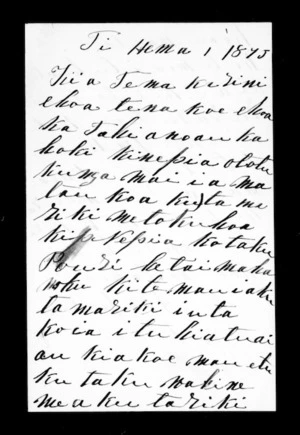 Ti Hema 1 1873
Kia Te Makirini
ehoa tena koe ehoa
ka Tahi anoau ka
hoki ki nepia
kunga mai i a ma
tau koa kuta ma
riki me taku hoa
ki Nepia ko taku
Pouri he tai maha
noku kite mauiaku
tamariki inta
koia i tu hia tuai
au kia koe mau etu
ku taku wahine
me aku tariki